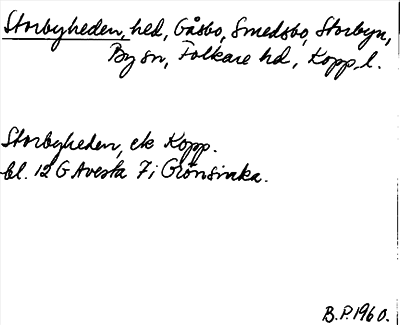 Storbyheden, hed, Gåsbo, Smedsbo, Storbyn,
By sn, Folkare hd, Kopp. l.
Storbyheden, ek Kopp.
bl. 12 G Avesta 7i Grönsinka.
B.P. 1960.